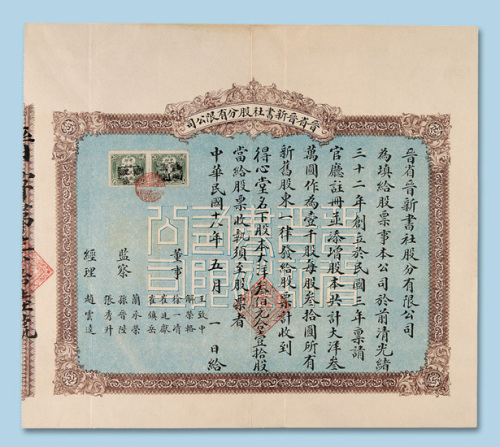 晉省晉新書社股分有限公司
晉省晉新書社股份有限公司
為填給股票事本公司於前清光緒
三十二年創立於民國三年稟請
官廳註冊並添增股本共計大洋叁
萬圓作為壹千股每股叁拾圓所有
新舊股東一律發給股票計收到
得心堂名下股本大洋叁佰元合壹拾股
當給股票收執須至股票者
中華民國十八年五月一日給
董事
王致中
解榮輅
徐一清
崔廷獻
崔岳
監察
蘭承榮
孫晉陸
張秀升
經理
趙雲逵